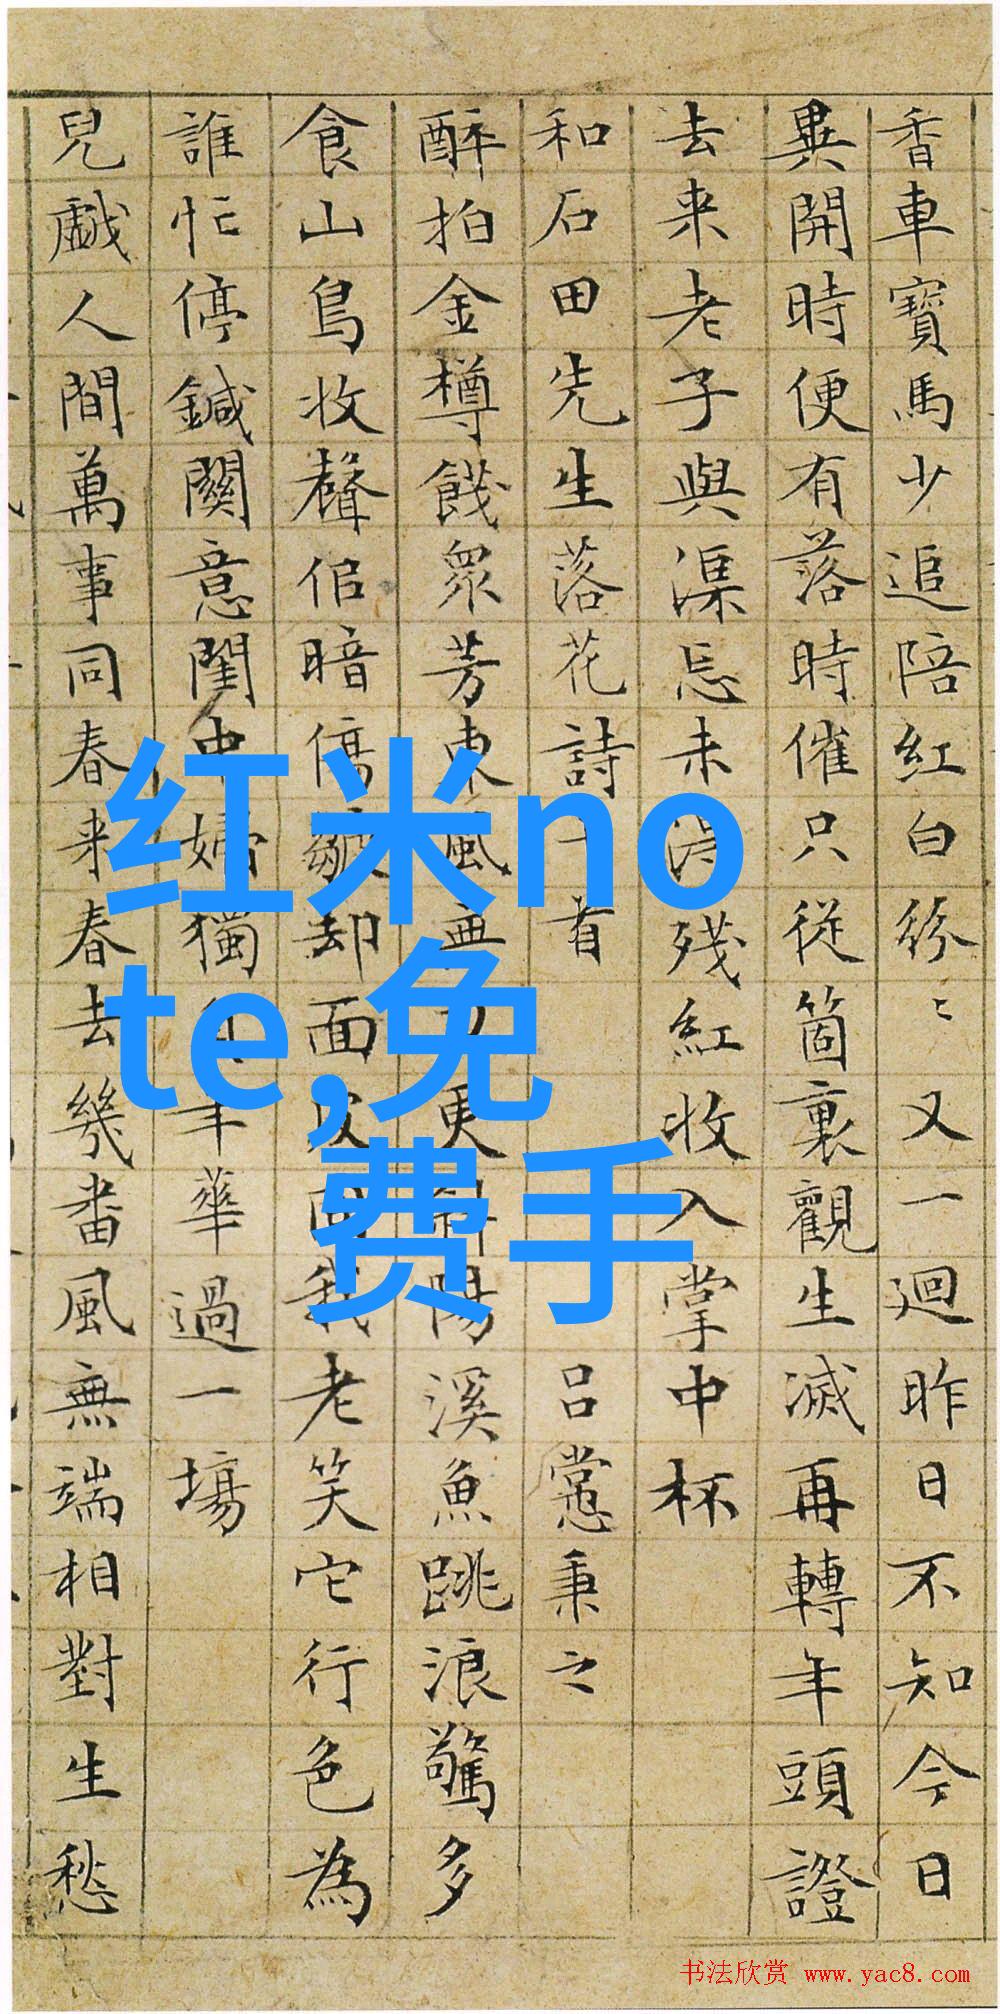 香車寶馬少追陪紅白紛〻又一迴昨日不知今日
異開時便有落時催只從箇裏觀生滅再轉年頭證
去来老子與渠忘未殘紅收入掌中杯
和石田先生落花詩十首 呂㦂秉之
醉拍金樽餞眾芳東風更斜陽溪魚跳浪驚多
食山鳥收聲倍暗傷皺却面皮回我老笑它行色為
誰忙停鍼關意閨中婦獨年華過一場
兒戲人間萬事同春来春去幾番風無端相對生愁
红米no
te,免
费手
书法欣赏 www.yac8.com